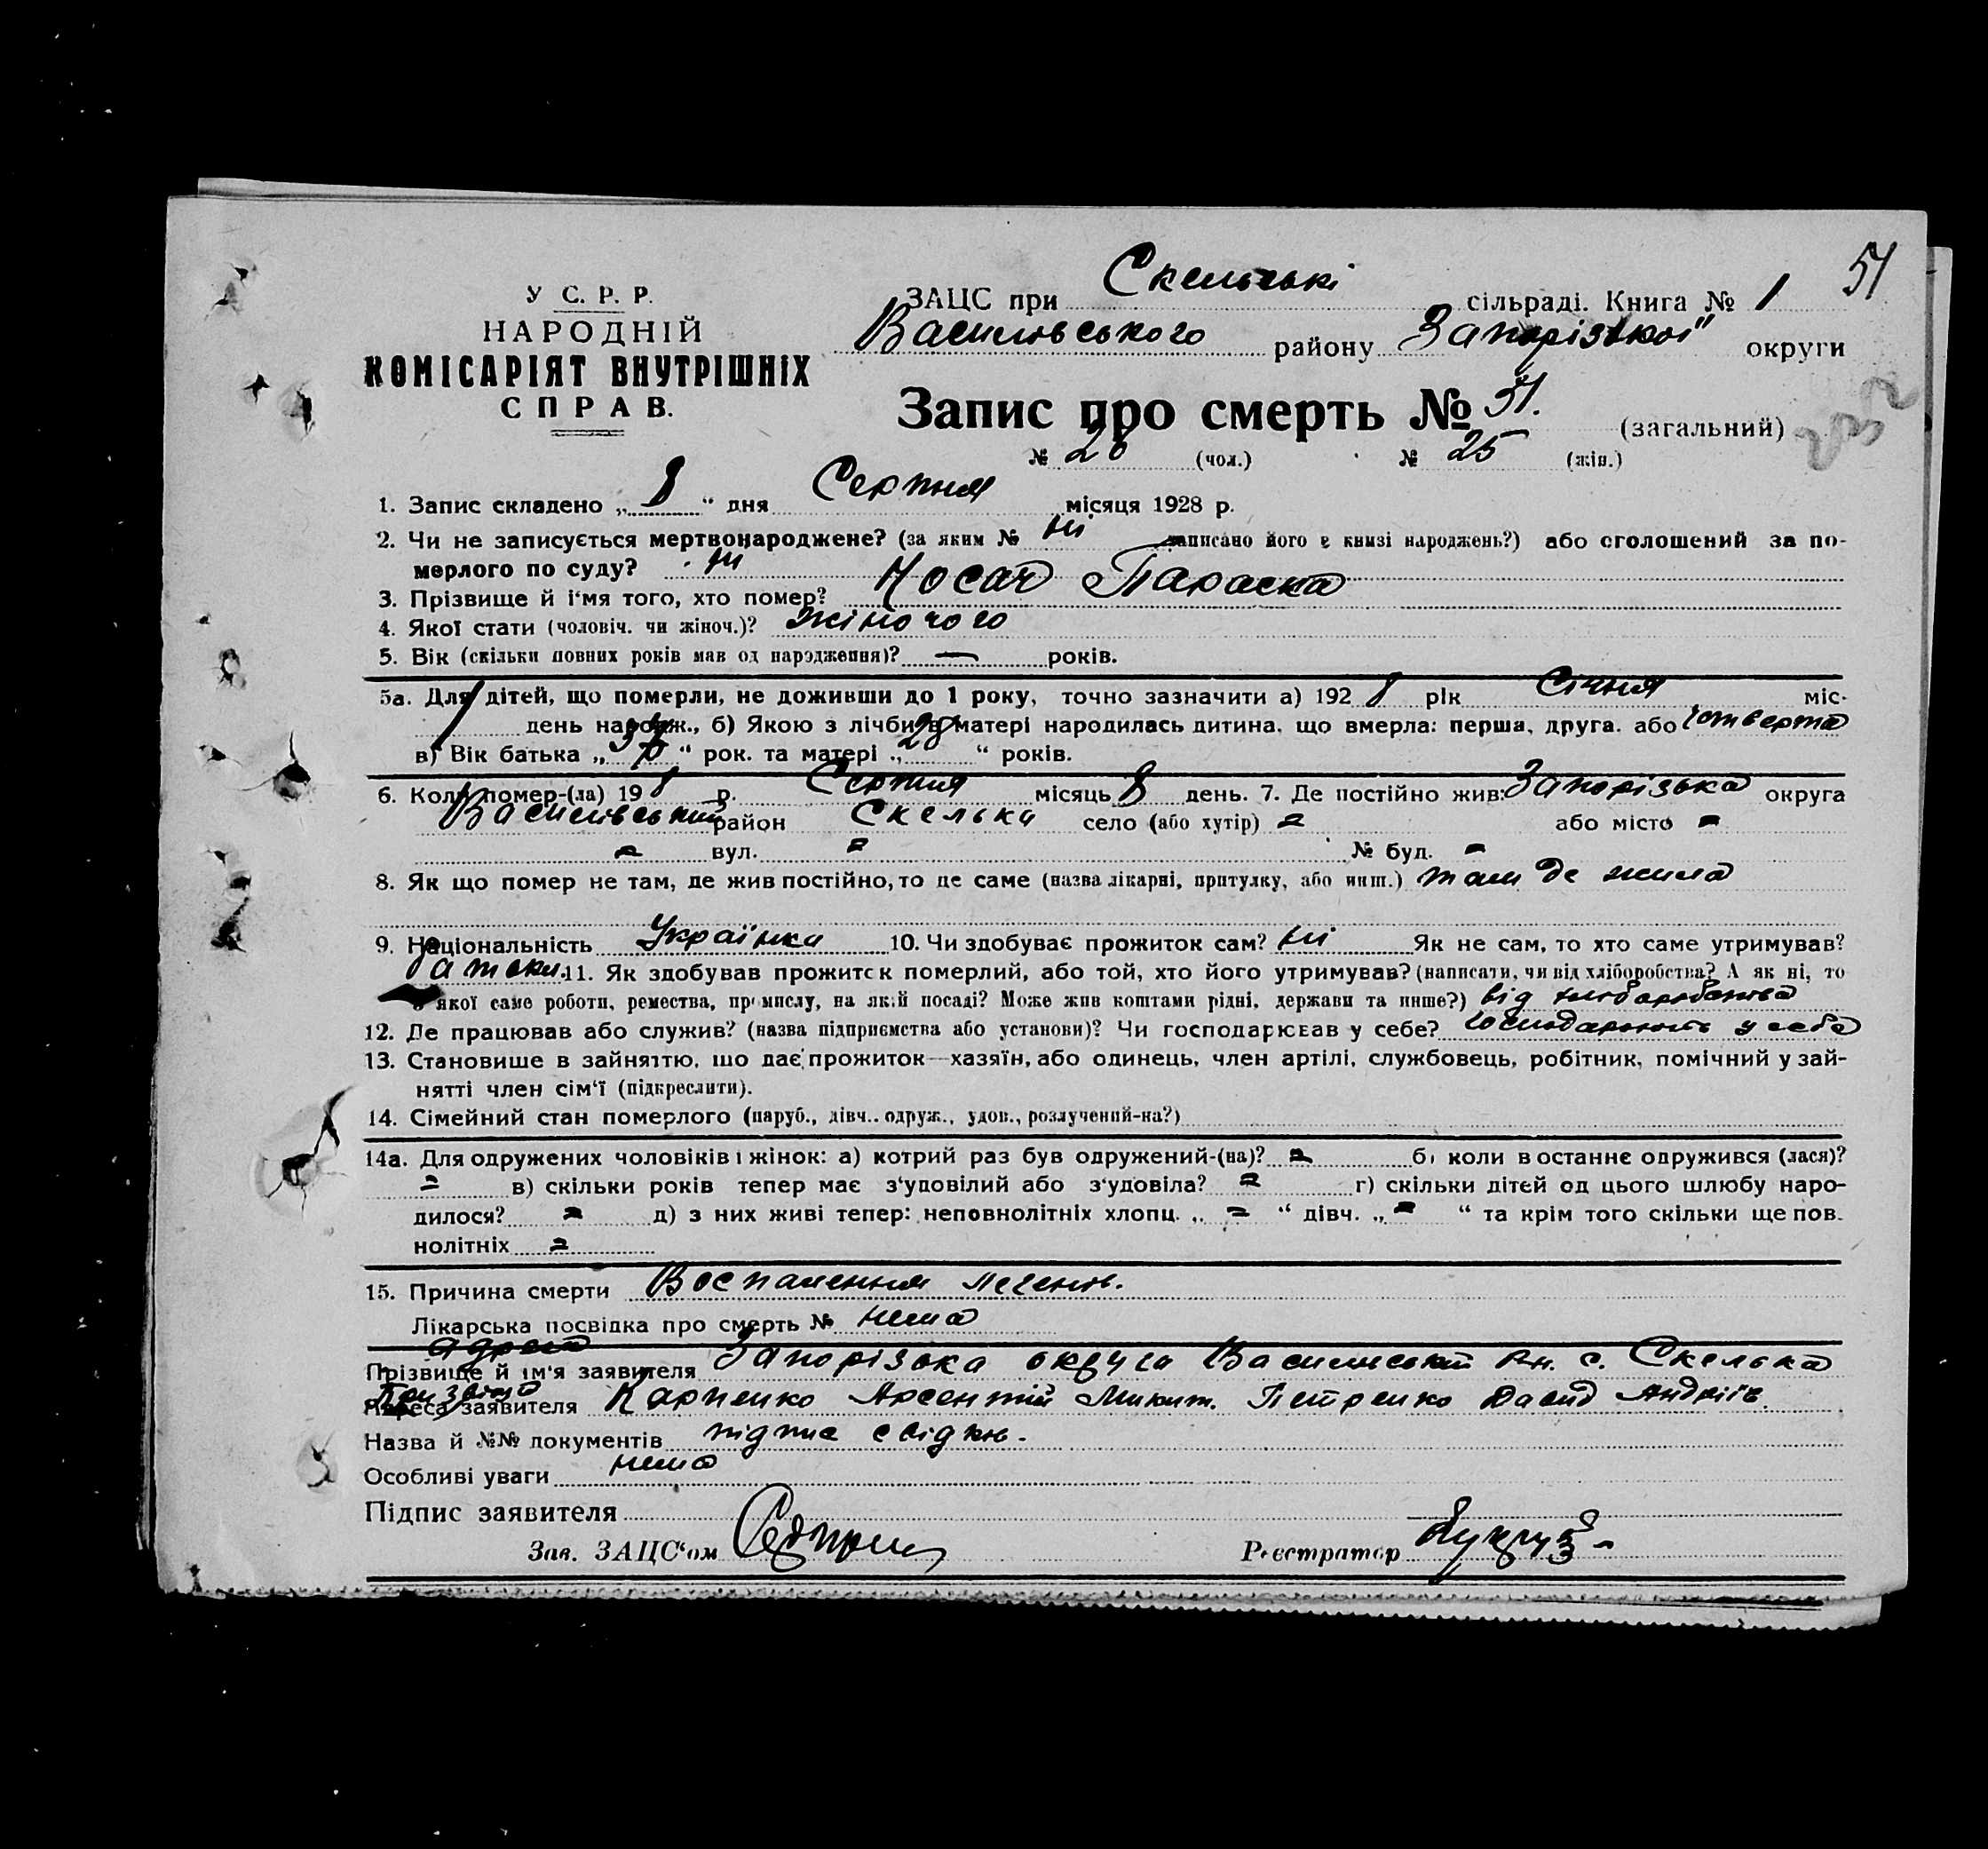 51
У С. Р. Р.
НАРОДНІЙ
КОМІСАРІЯТ ВНУТРІШНІХ
СПРАВ.
ЗАЦС при Скельській сільраді. Книга № 1
Василівського району Запорізької округи
Запис про смерть № 51. (загальний)
№ 26 (чол.) № 25 (жін.)
1. Запис складено „ 8 “ дня Серпня місяця 1928 р.
2. Чи не записується мертвонароджене? (за яким № ні записано його в книзі народжень?) або оголошений за по-
мерлого по суду? ні
3. Прізвище й і'мя того, хто помер? Носач Параска
4. Якої статі (чоловіч. чи жіноч.)? жіночого
5. Вік (скільки повних років мав од народження)? — років.
5а. Для дітей, що померли, не доживши до 1 року, точно зазначити а) 192 8 рік Січня міс-
1 день народж., б) Якою з лічби в матері народилась дитина, що вмерла: перша, друга, або четверта
в) Вік батька „ “ рок. та матері „ 28 “ років.
6. Коли помер-(ла) 19 8 р. Серпня місяць 8 день. 7. Де постійно жив: Запорізька округа
Василівський район Скелька село (або хутір) = або місто =
= вул. = № буд. =
8. Як що помер не там, де жив постійно, то де саме (назва лікарні, притулку, або инш.) там де жила
9. Національність Українка 10. Чи здобуває прожиток сам? ні Як не сам, то хто саме утримував?
батьки. 11. Як здобував прожиток померлий, або той, хто його утримував? (написати, чи від хліборобства? А як ні, то
з якої саме роботи, ремества, промислу, на якій посаді? Може жив коштами рідні, держави та инше?) від хліборобства
12. Де працював або служив? (назва підприємства або установи)? Чи господарював у себе? господарюють у себе
13. Становище в зайняттю, що дає прожиток—хазяїн, або одинець, член артілі, службовець, робітник, помічний у зай-
нятті член сім'ї (підкреслити).
14. Сімейний стан померлого (паруб., дівч.. одруж., удов., розлучений-на?)
14а. Для одружених чоловіків і жінок: а) котрий раз був одружений-(на)? = б) коли востаннє одружився (лася)?
= в) скільки років тепер має з'уловілий або з'удовіла? = г) скільки дітей од цього шлюбу наро-
дилося? = д) з них живі тепер: неповнолітніх хлопц. „ = “ дівч. „ = “ та крім того скільки ще пов.
нолітніх =
15. Причина смерти Воспаления легень.
Лікарська посвідка про смерть № нема
адреса
Прізвище й ім'я заявителя Запорізька округа Василівський Рн. с. Скелька
Прізвище
Адреса заявителя Карпенко Арсентій Микит. Петренко Давид Андріїв.
Назва й №№ документів підпис свідків.
Особливі уваги нема
Підпис заявителя
Зав. ЗАЦС'ом
Реєстратор